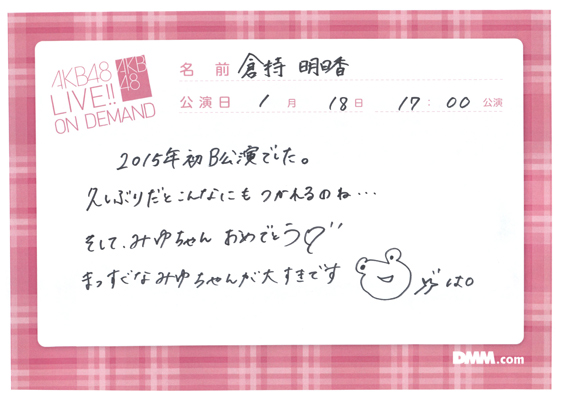 AKB48
LIVE!!
ON DEMAND
AKB
48
名前 倉持 明日香
公演日 1月 18日 17:00 公演
2015年初B公演でした。
久しぶりだとこんなにもつかれるのね…
そして、みゆちゃん おめでとう
まっすぐなみゆちゃんが大すきです
DMM.com